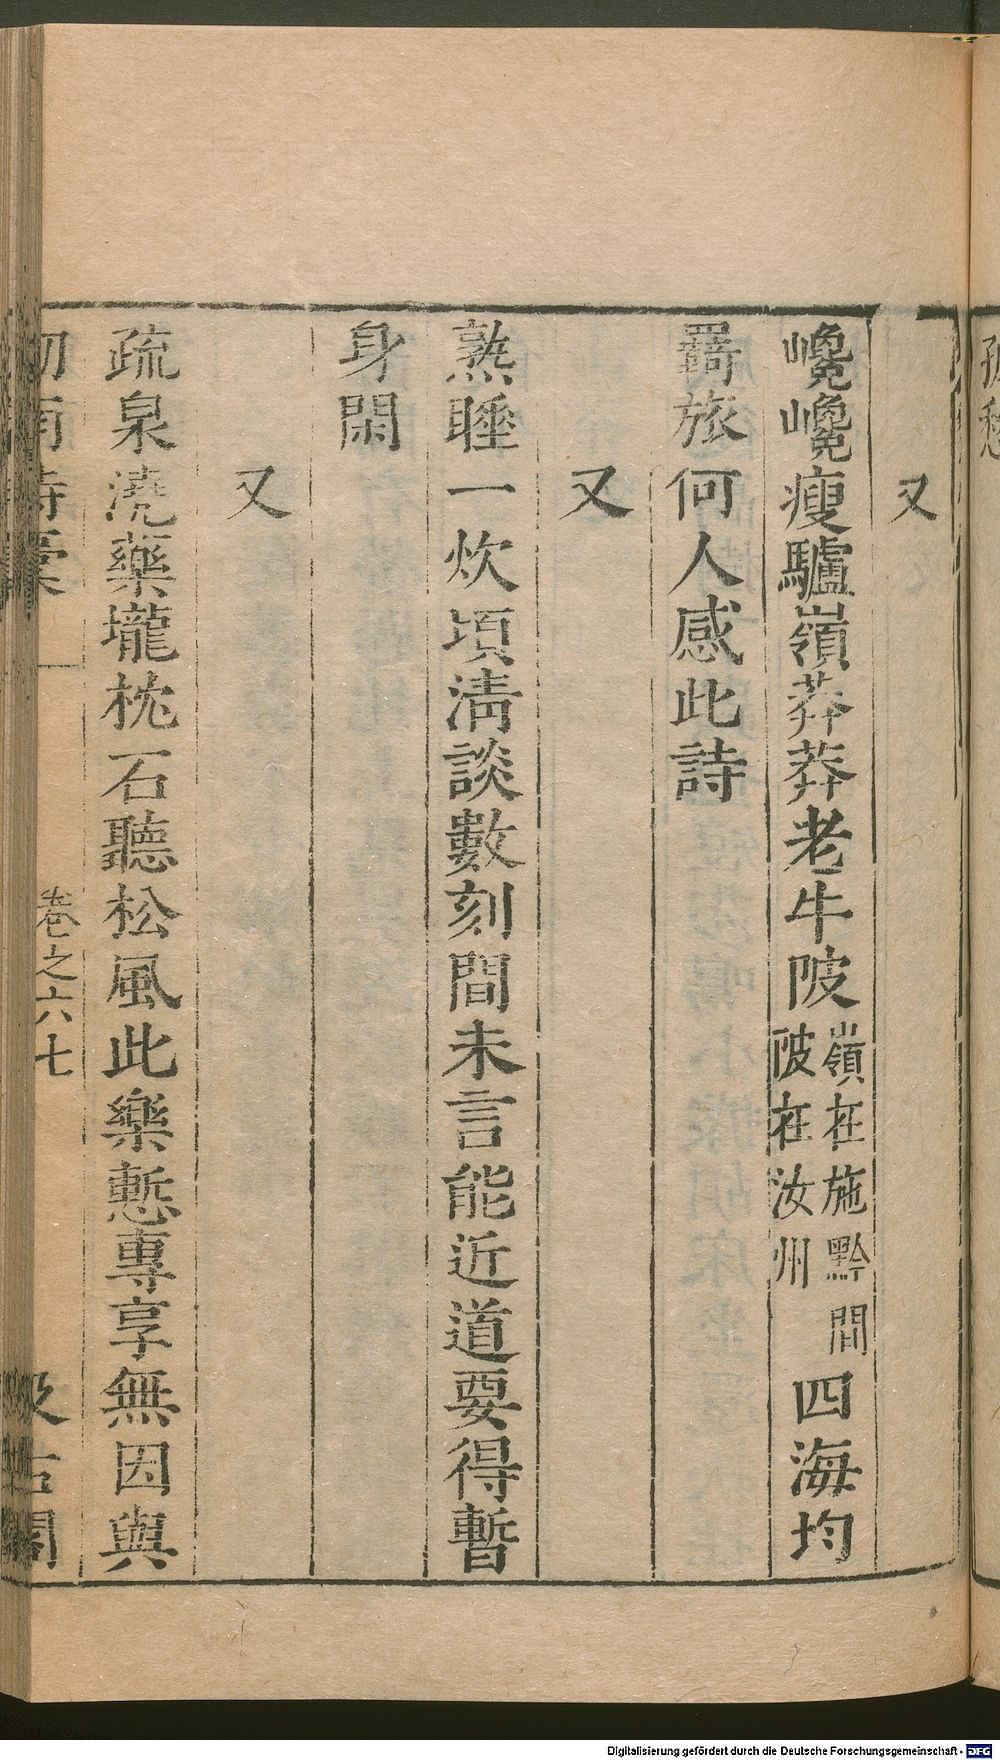 孤愁
又
巉巉瘦驢嶺莽莽老牛陂嶺在施黔間陂在汝州四海均
羇旅何人感此詩
又
熟睡一炊頃清談數刻間未言能近道要得暫
身閑
又
疏泉澆藥壠枕石聽松風此樂慙專享無因與
劒南詩稾 卷之六七 汲古閣
Digitalisierung gefördert durch die Deutsche Forschungsgemeinschaft - DFG